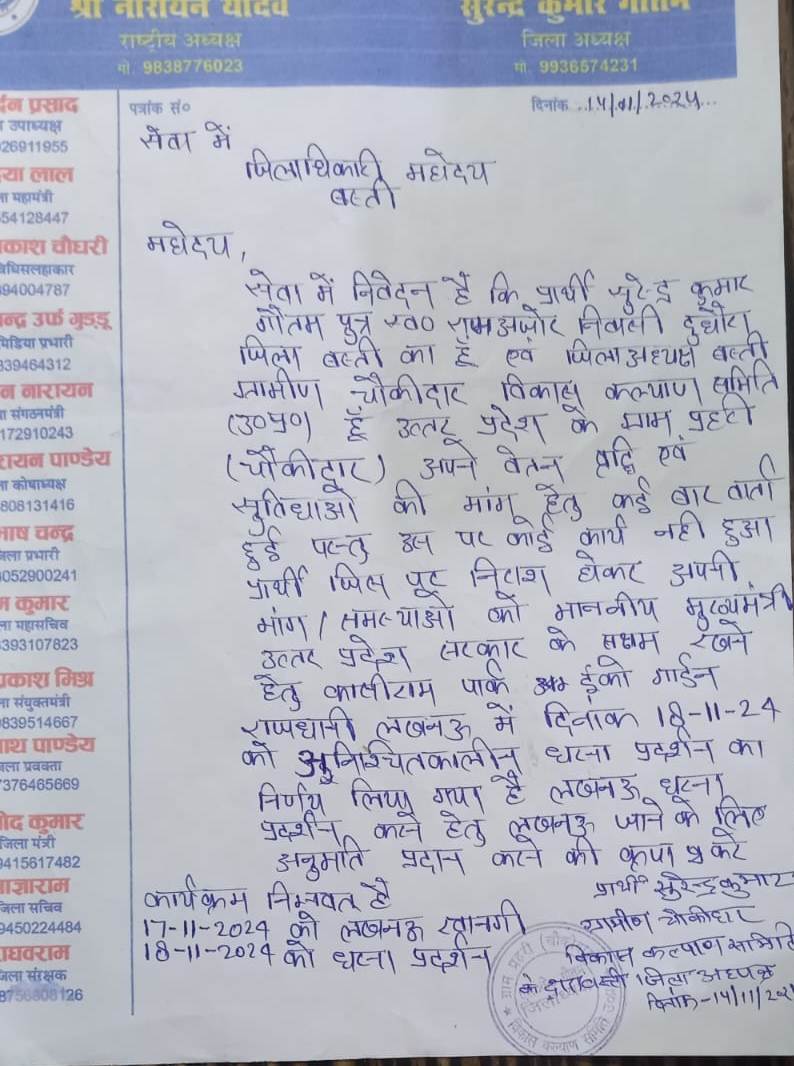 श्री नारायन यादव
राष्ट्रीय अध्यक्ष
मो. 9838776023
सुरेन्द्र कुमार गौतम
जिला अध्यक्ष
मो. 9936574231
प्रसाद
उपाध्यक्ष
26911955
लाल
महामंत्री
54128447
चौधरी
94004787
उर्फ गुड्डू
मिडिया प्रभारी
339464312
नारायन
संगठनमंत्री
172910243
पाण्डेय
कोषाध्यक्ष
808131416
चन्द्र
प्रभारी
052900241
कुमार
महासचिव
393107823
मिश्रा
संयुक्तमंत्री
839514667
पाण्डेय
प्रवक्ता
376465669
कुमार
जिला मंत्री
9415617482
जिला सचिव
9450224484
जिला संरक्षक
8756808126
पत्रांक सं०
दिनांक 14/11/2024
सेवा में
जिलाधिकारी महोदय
बस्ती
महोदय,
सेवा में निवेदन है कि प्रार्थी सुरेन्द्र कुमार
गौतम पुत्र स्व० रामअजोर निवासी दुधौरा
जिला बस्ती का हूँ एवं जिलाअध्यक्ष बस्ती
ग्रामीण चौकीदार विकास कल्याण समिति
(उ०प्र०) हूँ उत्तर प्रदेश के ग्राम प्रहरी
(चौकीदार) अपने वेतन वृद्धि एवं
सुविधाओ की मांग हेतु कई बार वार्ता
हुई परन्तु उस पर कोई कार्य नही हुआ
प्रार्थी जिस पर निराश होकर अपनी
मांग / समस्याओ को माननीय मुख्यमंत्री
उत्तर प्रदेश सरकार के सक्षम रखने
हेतु काशीराम पार्क ईको गार्डन
राजधानी लखनऊ में दिनांक 18-11-24
को अनिश्चितकालीन धरना प्रदर्शन का
निर्णय लिया गया है लखनऊ धरना
प्रदर्शन करने हेतु लखनऊ जाने के लिए
अनुमति प्रदान करने की कृपा करे
कार्यक्रम निम्नवत है
17-11-2024 को लखनऊ रवानगी
18-11-2024 को धरना प्रदर्शन
प्रार्थी सुरेन्द्र कुमार
ग्रामीण चौकीदार
विकास कल्याण समिति
जिला अध्यक्ष
दिनांक-14/11/202